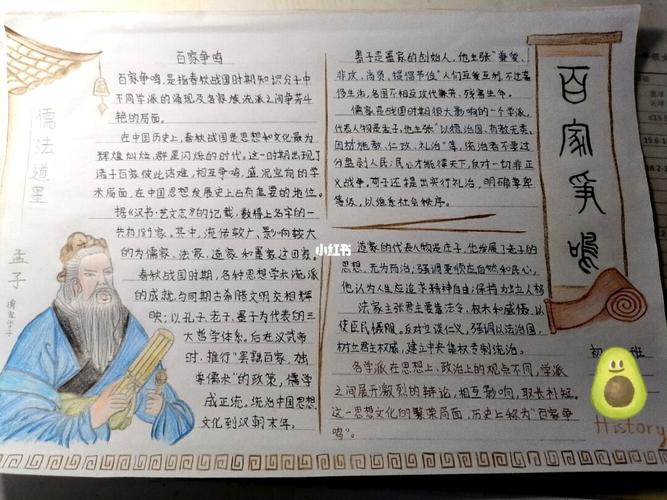 百家争鸣
百家争鸣，是指春秋战国时期知识分子中
不同学派的涌现及各家流派之间争芳斗
艳的局面。
在中国历史上，春秋战国是思想和文化最为
辉煌灿烂、群星闪烁的时代。这一时期出现了
诸子百家彼此诘难，相互争鸣，盛况空前的学
术局面，在中国思想发展史上占有重要的地位。
据《汉书·艺文志》的记载，数得上名字的一
共有189家。其中，流传较广，影响较大
的为儒家、法家、道家和墨家这四家。
春秋战国时期，各种思想学术流派
的成就，与同期古希腊文明交相辉
映；以孔子、老子、墨子为代表的三
大哲学体系。后在汉武帝
时，推行“罢黜百家，独
尊儒术”的政策，儒学
成正统。统治中国思想
文化到汉朝末年。
墨子是墨家的创始人，他主张“兼爱、
非攻、尚贤，提倡节俭”人们互爱互利，不过奢
侈生活，各国不相互攻伐兼并，残害生命。
儒家是战国时期很大影响的一个学派，
代表人物是孟子，他主张“以德治国，有教无类、
因材施教、仁政、礼治”等，统治者不要过
分压剥人民；民心才能得天下，反对一切非正
义战争，荀子还提出实行礼治，明确尊卑
等级，以维系社会秩序。
道家的代表人物是庄子，他发展了老子的
思想，无为而治；强调要顺应自然和民心，
他认为人生应追求精神自由；保持独立人格
法家主张君主要靠法令、权术和威慑，以
使臣民慑服。反对空谈仁义，强调以法治国，
树立君主权威，建立中央集权专制统治。
各学派在思想上、政治上的观点不同，学派
之间展开激烈的辩论，相互影响，取长补短。
这一思想文化的繁荣局面，历史上称为“百家争
鸣”。
儒法道墨
孟子
百家争鸣
初
班
History
小红书